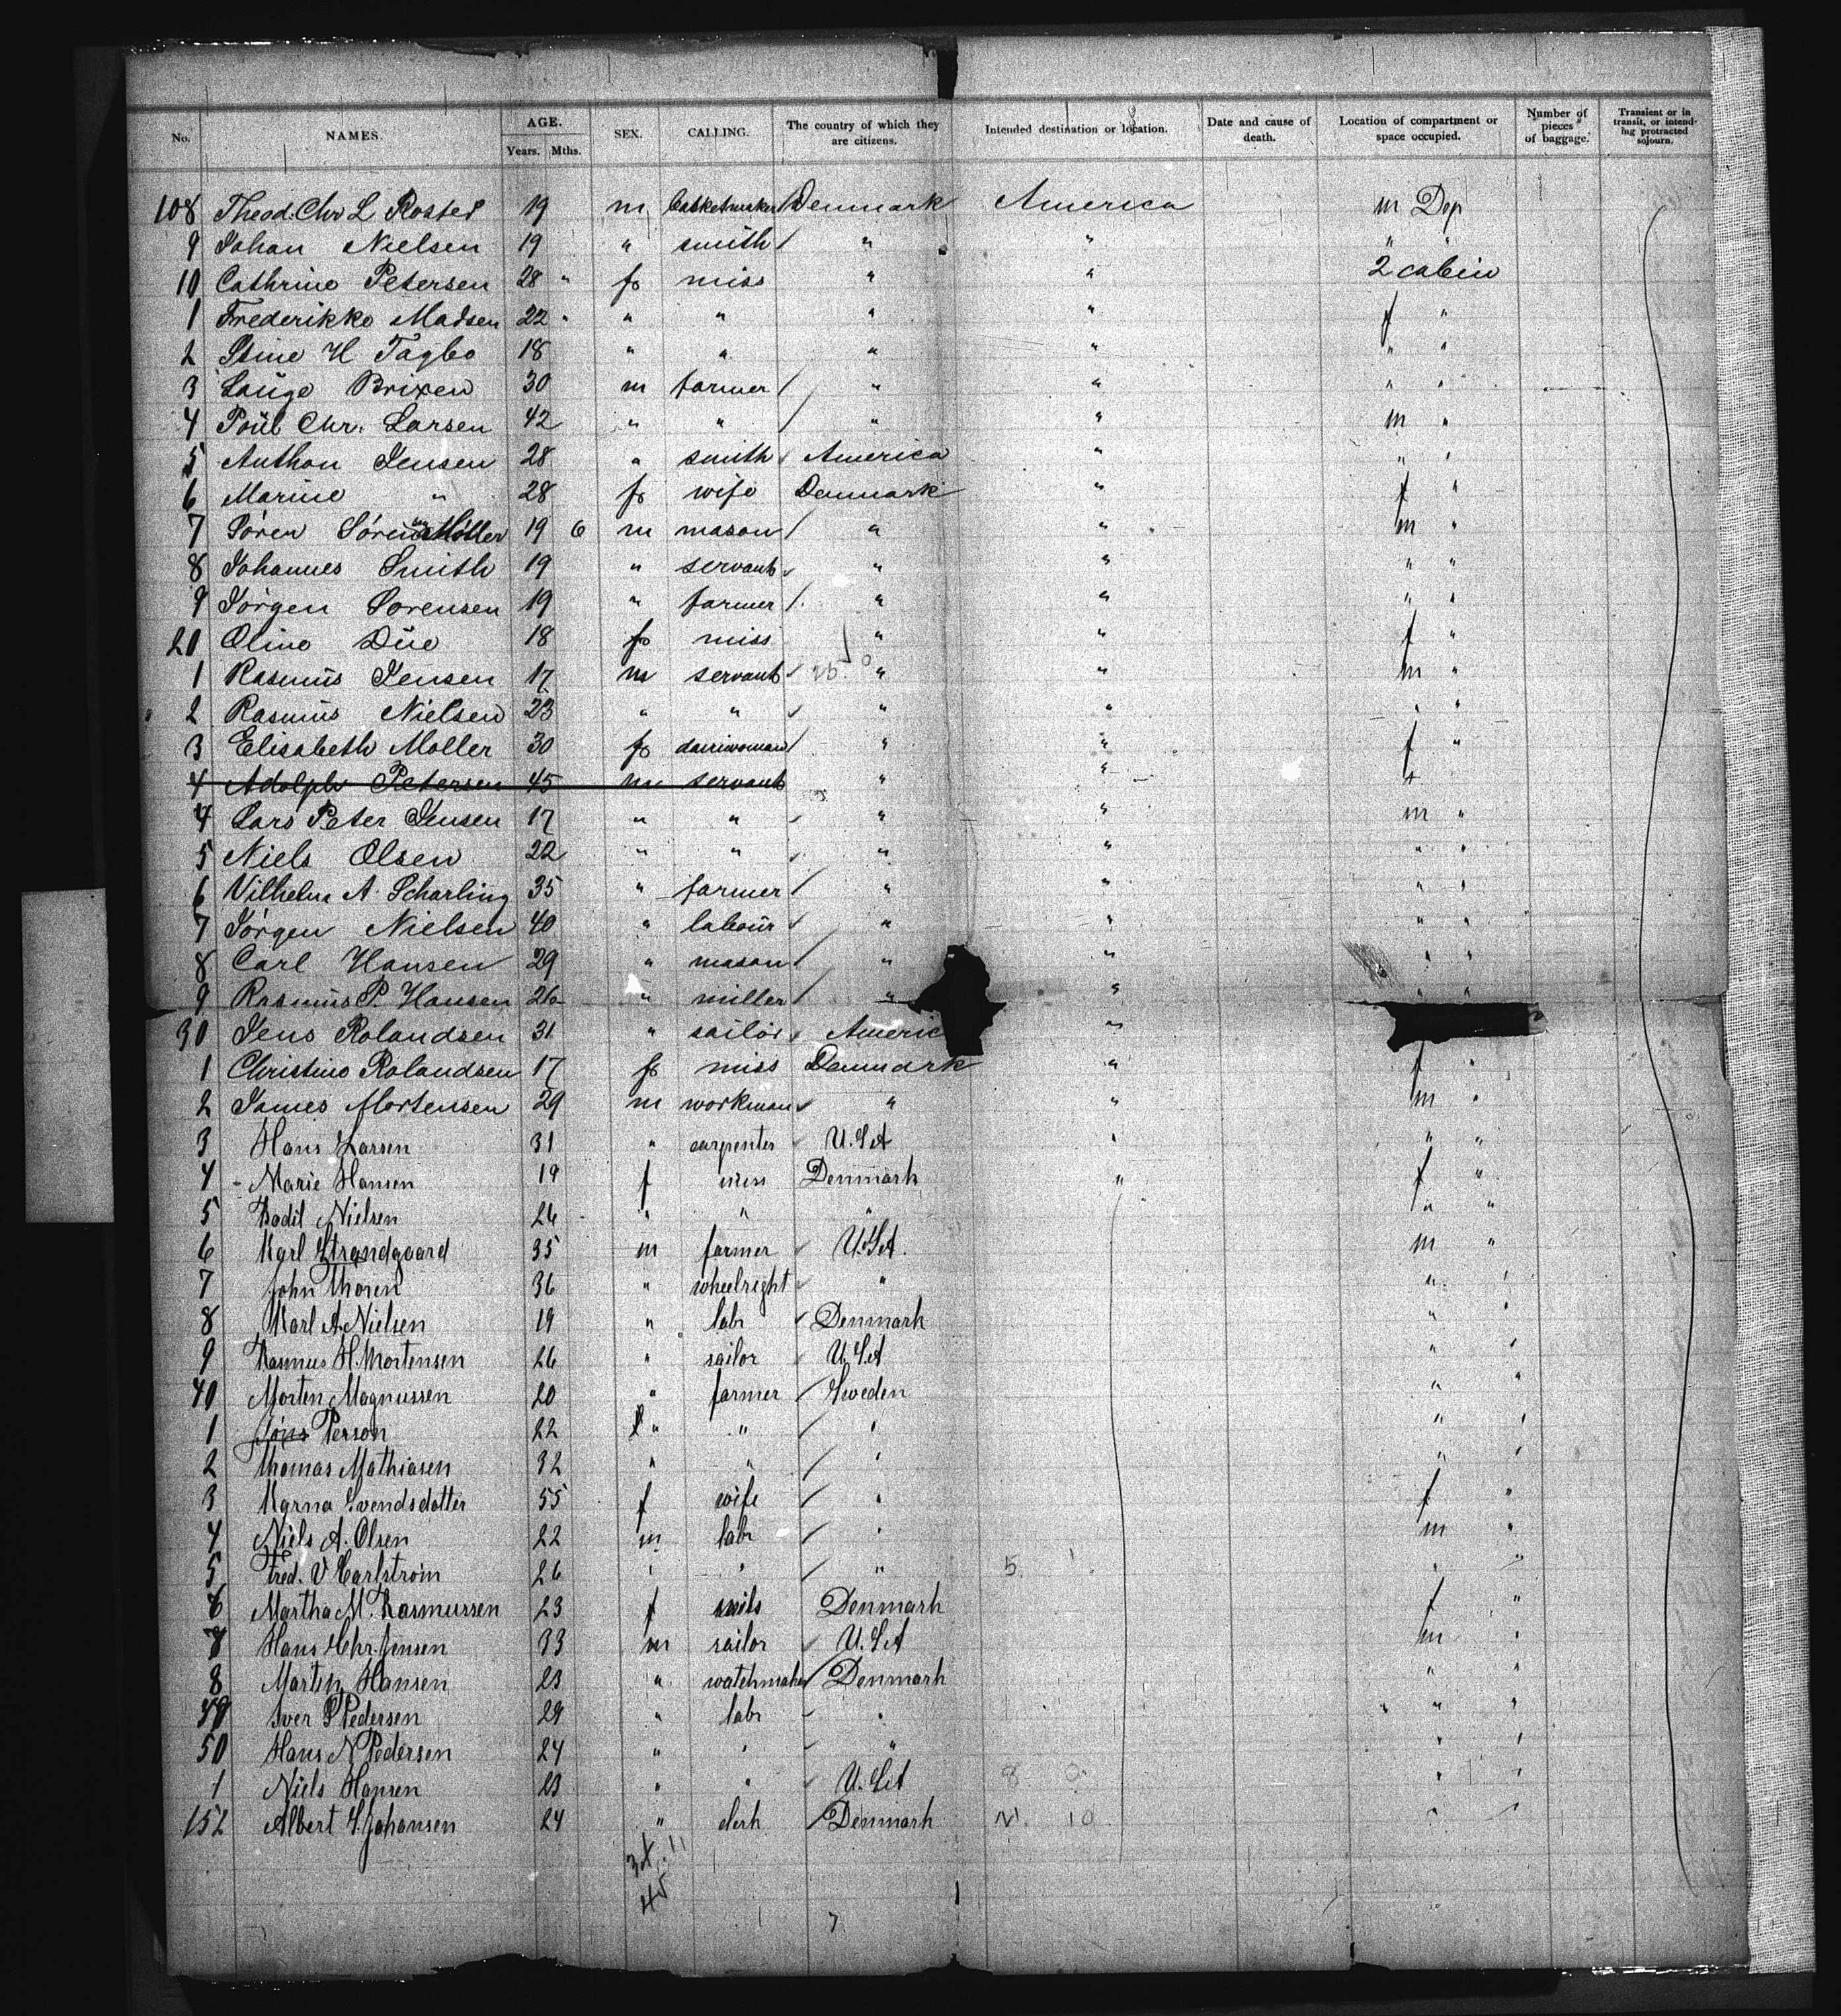 No. NAMES. AGE. Years. Mths. SEX. CALLING. The country of which they are citizens. Intended destination or location. Date and cause of death. Location of compartment or space occupied. Number of pieces of baggage. Transient or in transit, or intending protracted sojourn.
108 Theod. Chr L 19 m Denmark America m Dep
9 Johan Nielsen 19 " smith / " " " "
10 Cathrine Petersen 28 " f miss " " 2 cabin
1 Frederikke Madsen 22 " " " " " f "
2 Stine H Tagbo 18 " " " " " "
3 Lauge Brixen 30 m farmer / " " " "
4 Poul Chr. Larsen 42 " " / " " m "
5 Anthon Jensen 28 " smith America " " "
6 Marine " 28 f wife Denmark " f "
7 Søren Sørensen Møller 19 6 m mason / " " m "
8 Johannes Smith 19 " servant " " " "
9 Jörgen Sorensen 19 " farmer / " " " "
20 Oline Düe 18 f miss " " f "
1 Rasmus Jensen 17 m servant 25 " " m "
2 Rasmus Nielsen 23 " " " " " "
3 Elisabeth Moller 30 f dairiwoman / " " f "
4 Adolph Petersen 45 m servant " "
4 Lars Peter Jensen 17 " " " " m "
5 Niels Olsen 22 " " " " " "
6 Vilhelm A Scharling 35 " farmer / " " " "
7 Jörgen Nielsen 40 " labour " " " "
8 Carl Hansen 29 " mason / " " " "
9 Rasmus P. Hansen 26 " miller / " " " "
30 Jens Rolandsen 31 " sailor Americ "
1 Christine Rolandsen 17 f miss Denmark " f "
2 James Mortensen 29 m workman " " m "
3 Hans Larsen 31 " carpenter U.S.A " " "
4 Marie Hansen 19 f miss Denmark " f "
5 Bodil Nielsen 26 " " " " "
6 Karl Strandgaard 35 m farmer U.S.A. m "
7 John Thoren 36 " wheelright " " "
8 Karl A. Nielsen 19 " labr Denmark " "
9 Rasmus H. Mortensen 26 " sailor U.S.A " "
40 Morten Magnussen 20 " farmer / Sweden " "
1 Jöns Person 22 " " / " " "
2 Thomas Mathiasen 32 " " / " " "
3 Karna Svendsdotter 55 f wife / " f "
4 Niels A. Olsen 22 m labr / " m "
5 Fred. V Carlström 26 " " / " 5 " "
6 Martha M. Rasmussen 23 f Denmark f "
7 Hans Chr. Jensen 33 m sailor U.S.A m "
8 Martin Hansen 23 " watchmaker / Denmark " "
49 Iver P Pedersen 29 " labr " " "
50 Hans N Pedersen 24 " " " " "
1 Niels Hansen 23 " " U.S.A 8 0 " "
152 Albert S. Johansen 24 " clerk / Denmark 10 " "
45
7